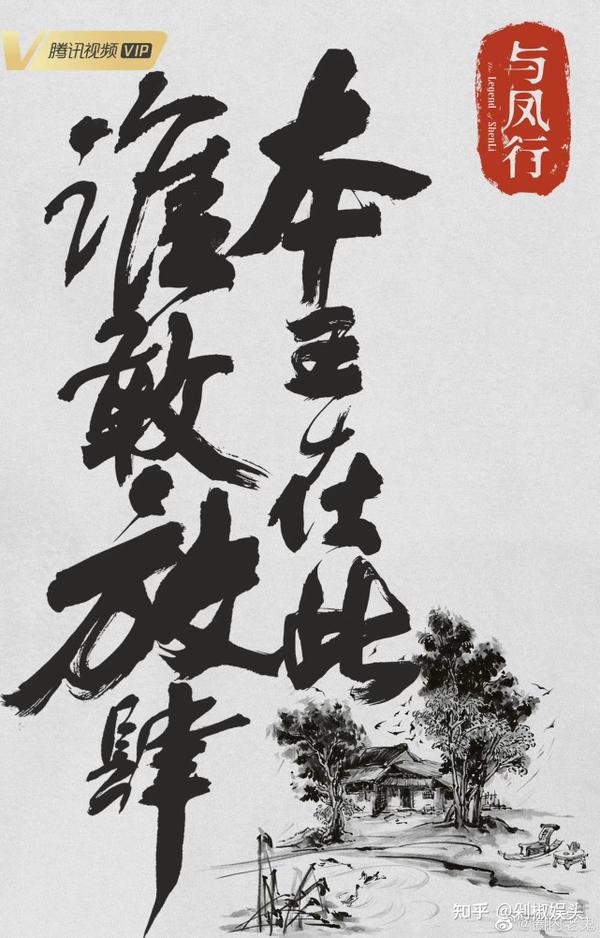 腾讯视频 VIP
与凤行
The Legend of ShenLi
本王在此
谁敢放肆
知乎 @剁椒娱头